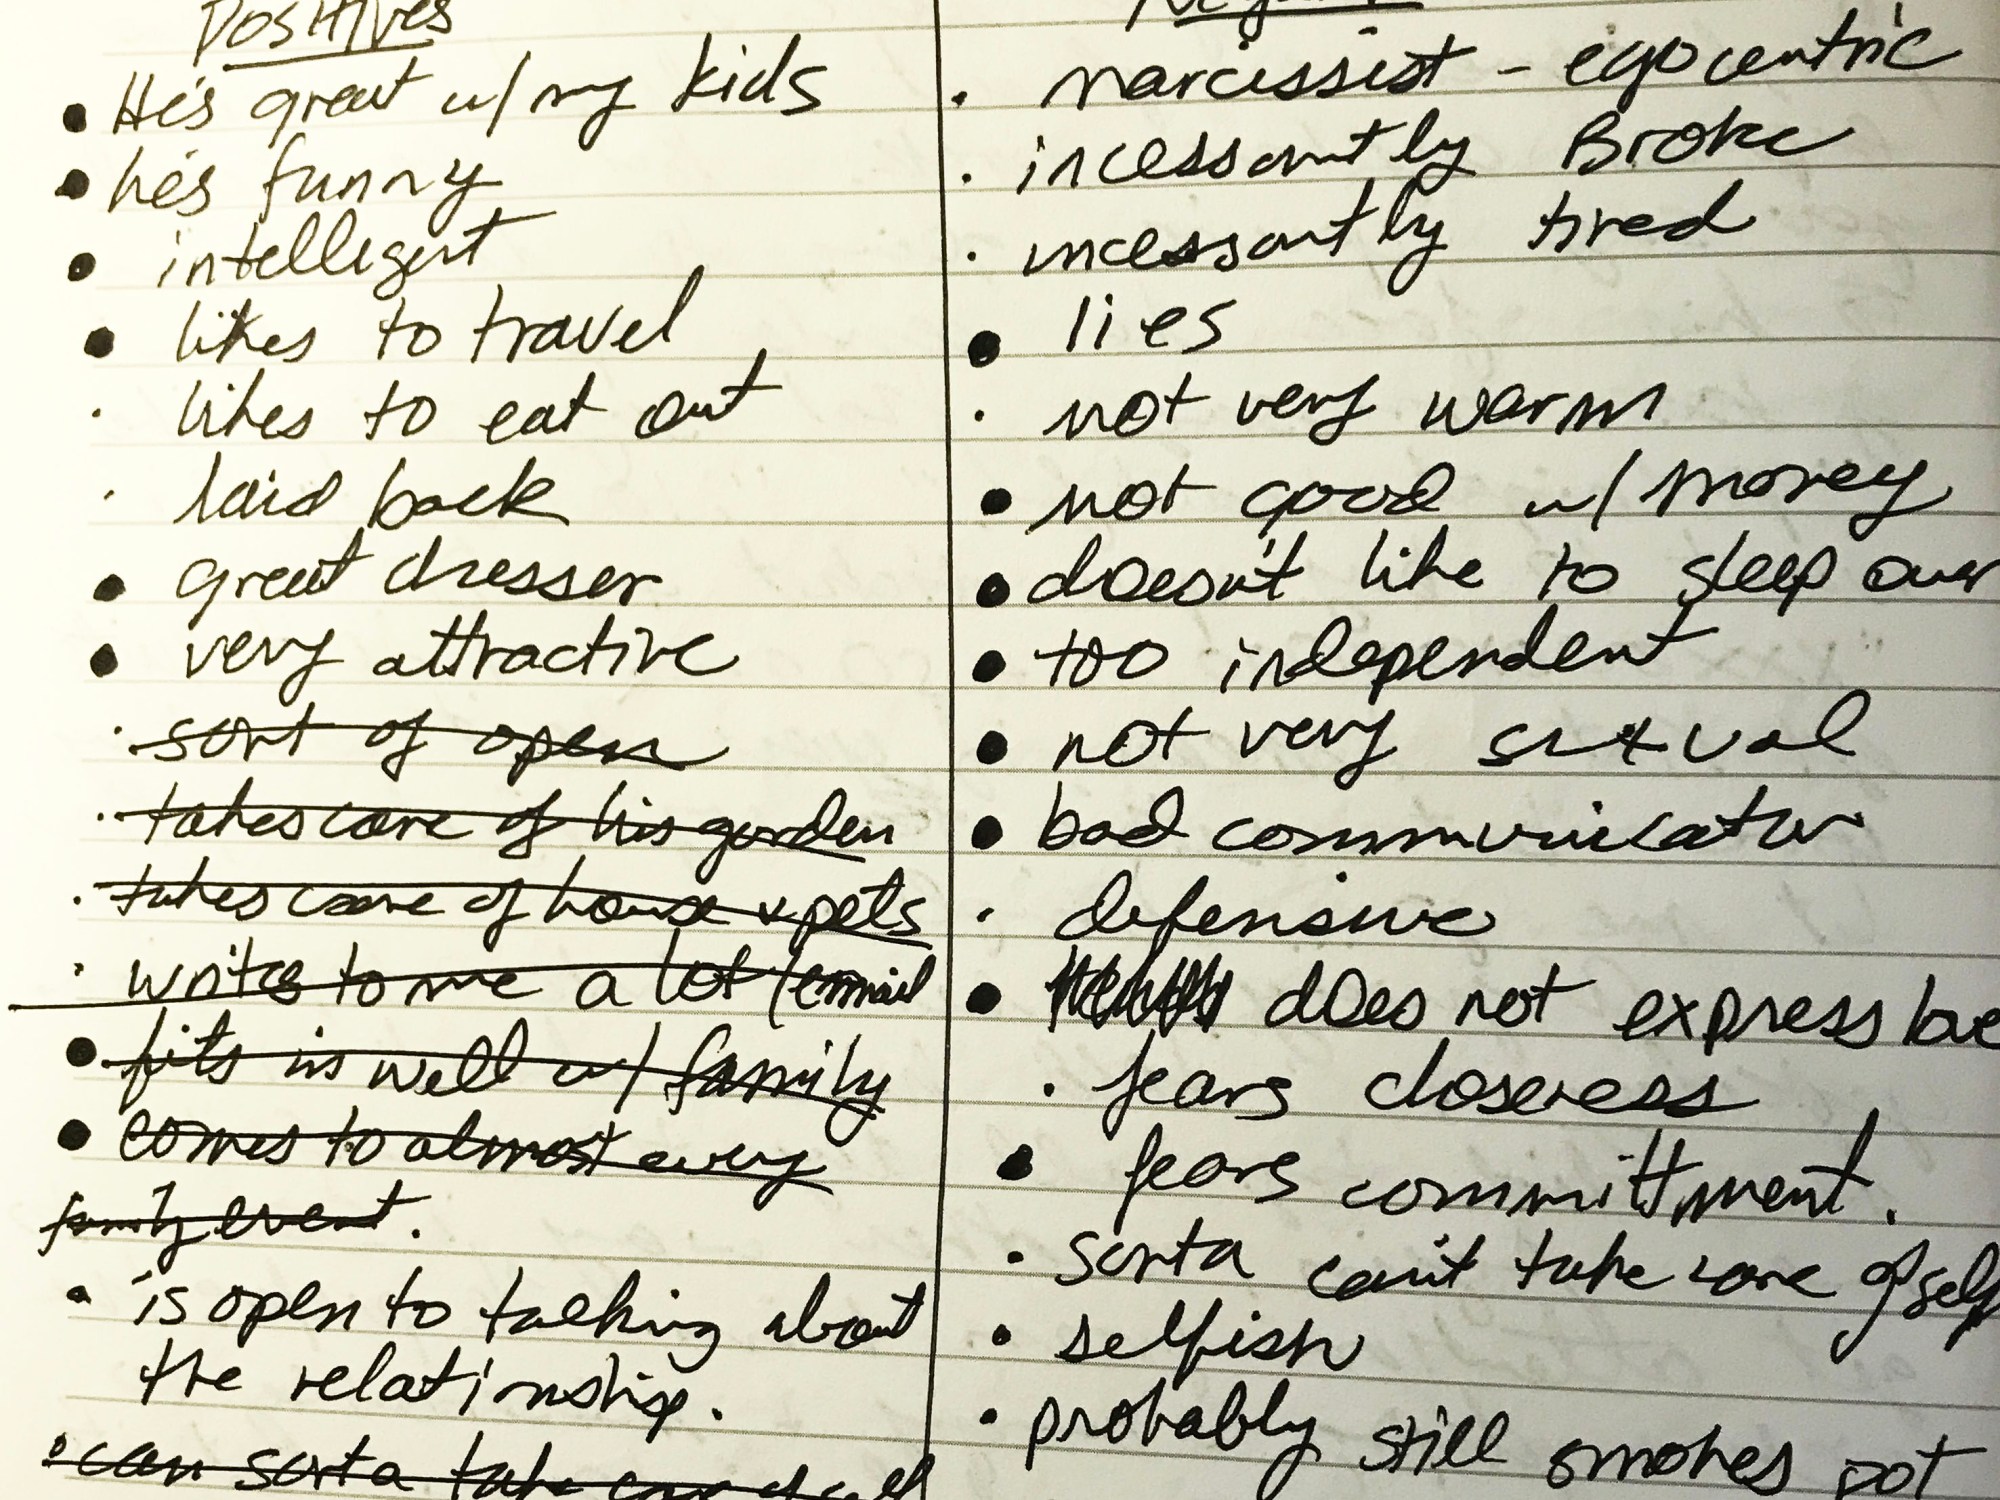 Positives
• He's great w/ my kids
• he's funny
• intelligent
• likes to travel
· likes to eat out
· laid back
• great dresser
• very attractive
· sort of open
· takes care of his garden
· takes care of house & pets
· writes to me a lot (email
• fits in well w/ family
• comes to almost every
family event.
• is open to talking about
the relationship.
• can sorta take care of self
· narcissist - egocentric
· incessantly Broke
· incessantly tired
• lies
· not very warm
• not good w/ money
• doesn't like to sleep over
• too independent
• not very sexual
• bad communicator
· defensive
• does not express love
· fears closeness
• fears committment.
· sorta can't take care of self
· selfish
· probably still smokes pot